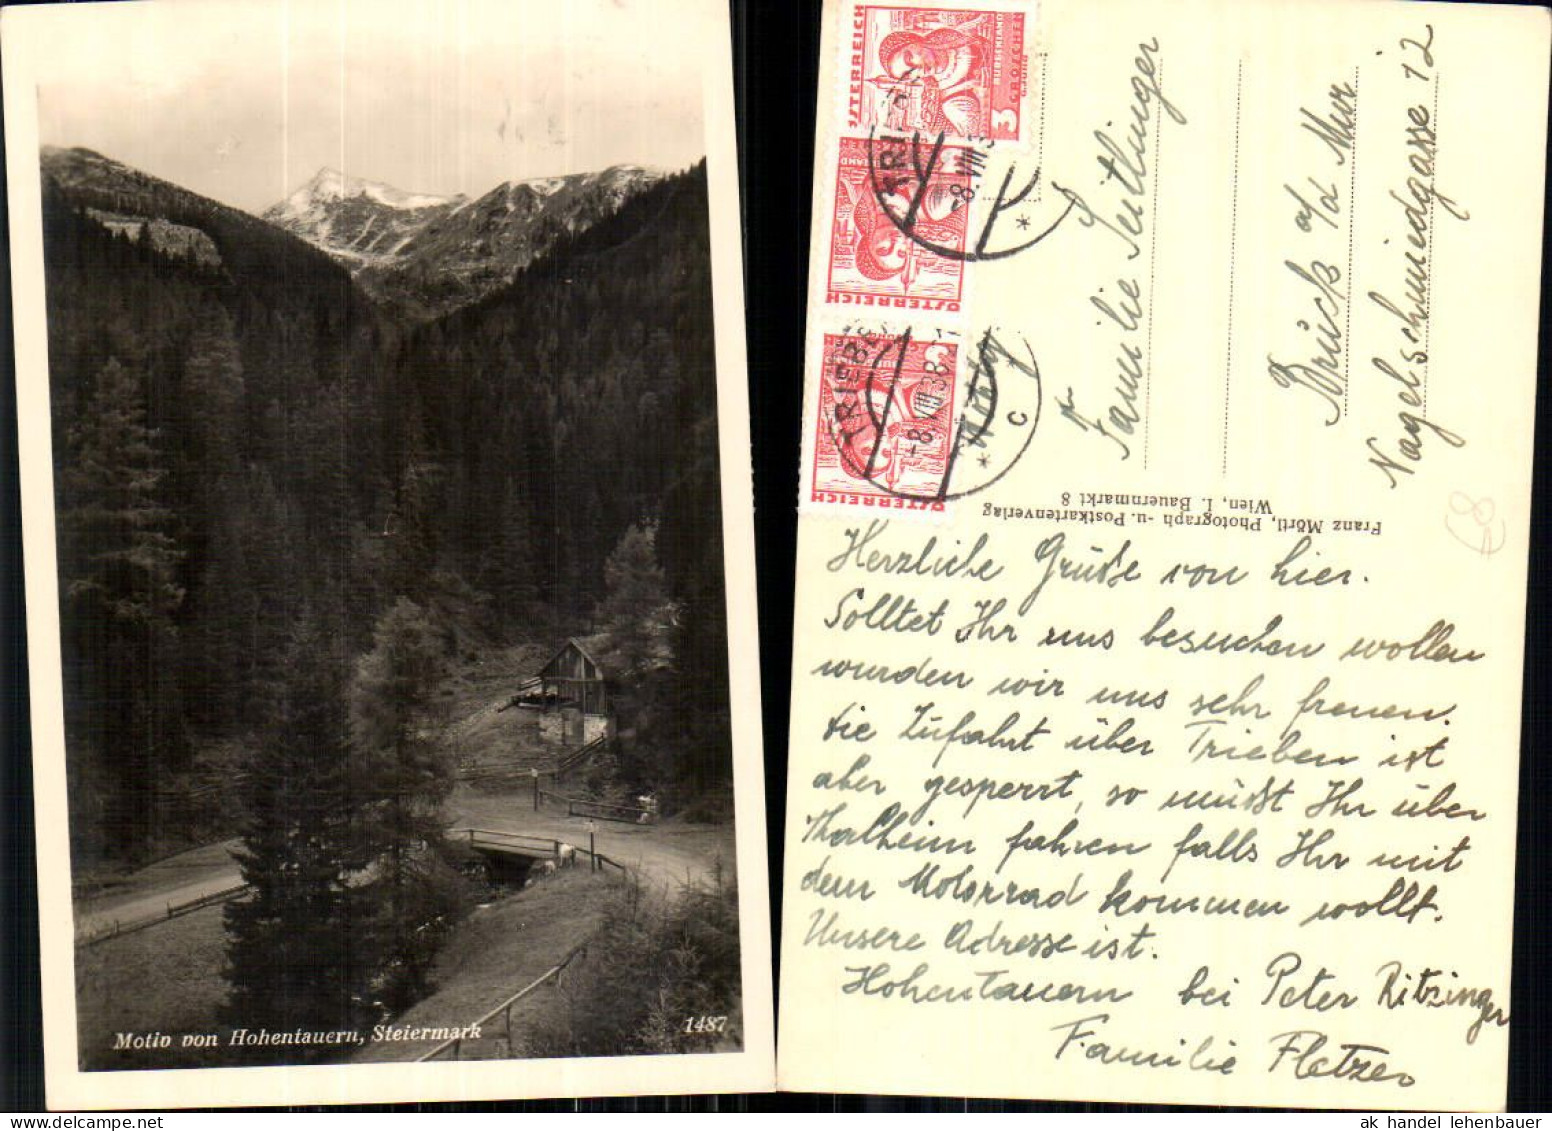 Motiv von Hohentauern, Steiermark
1487
ÖSTERREICH
BURGENLAND
3 GROSCHEN
TRIEBEN
-8.VIII.38
*
ÖSTERREICH
ÖSTERREICH
TRIEBEN
-8.VIII.38
* C
Familie Seitlinger
Bruck a/d Mur
Nagelschmiedgasse 12
Franz Mörtl, Photograph -u. Postkartenverlag
Wien, I. Bauernmarkt 8
68
Herzliche Grüße von hier.
Solltet Ihr uns besuchen wollen
wurden wir uns sehr freuen.
Die Zufahrt über Trieben ist
aber gesperrt, so müßt Ihr über
Thalheim fahren falls Ihr mit
dem Motorrad kommen wollt.
Unsere Adresse ist.
Hohentauern bei Peter Ritzinger
Familie Fletzer
ak handel lehenbauer